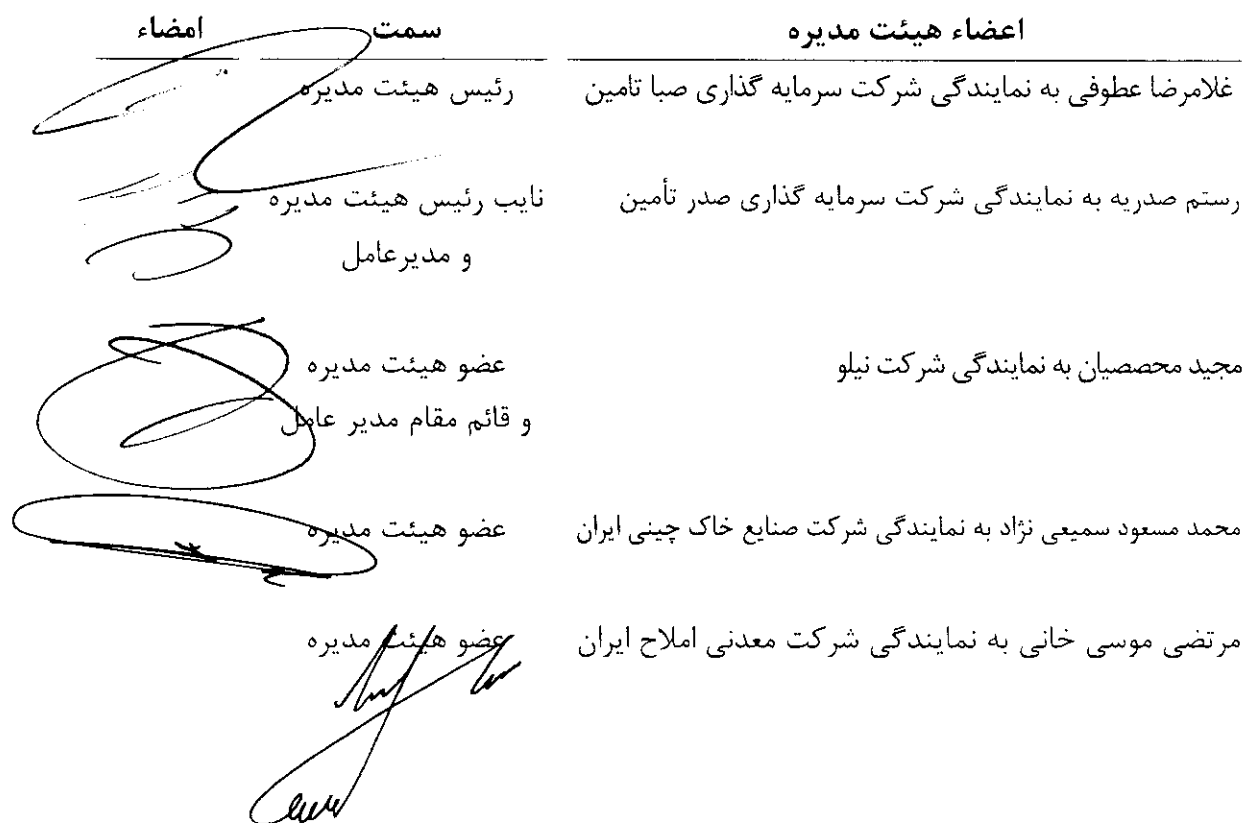 اعضاء هیئت مدیره سمت امضاء
غلامرضا عطوفی به نمایندگی شرکت سرمایه گذاری صبا تامین رئیس هیئت مدیره
رستم صدریه به نمایندگی شرکت سرمایه گذاری صدر تأمین نایب رئیس هیئت مدیره
و مدیرعامل
مجید محصصیان به نمایندگی شرکت نیلو عضو هیئت مدیره
و قائم مقام مدیر عامل
محمد مسعود سمیعی نژاد به نمایندگی شرکت صنایع خاک چینی ایران عضو هیئت مدیره
مرتضی موسی خانی به نمایندگی شرکت معدنی املاح ایران عضو هیئت مدیره